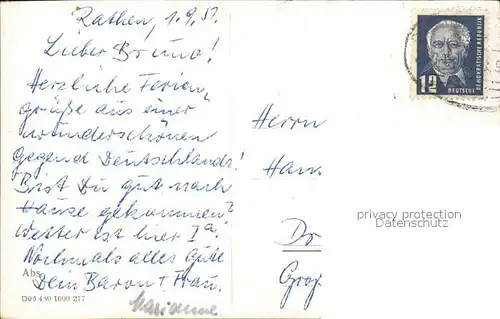 Rathen, 1.9.51.
Lieber Bruno!
Herzliche Ferien
grüße aus einer
wunderschönen
Gegend Deutschlands!
Bist Du gut nach
Hause gekommen?
Wetter ist hier Ia!
Nochmals alles Gute
Dein Baron + Frau.
Marianne
Abs.
D05 430 1000 217
12
DEUTSCHE
DEMOKRATISCHE REPUBLIK
Herrn
Hans
Dr
privacy protection
Datenschutz